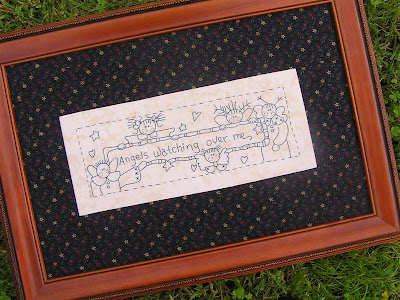 Angels watching over me